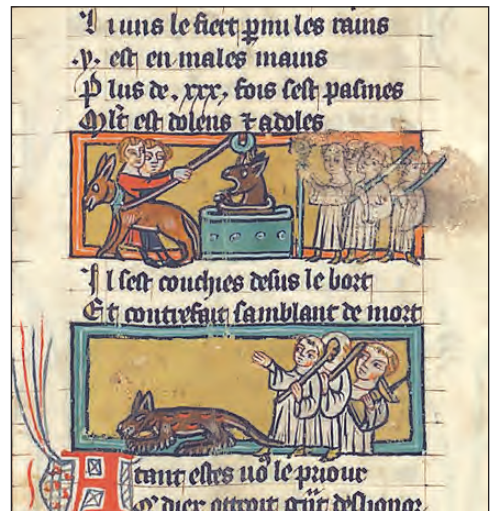 L i uns le fiert pmi les rains
.y. est en males mains
P lus de .xxx. fois sest pasmes
Mlt est dolens ⁊ adoles
I l sest couchies desus le bort
Et contrefait samblant de mort
A tant estes uo le priour
diex ottroit deshonor